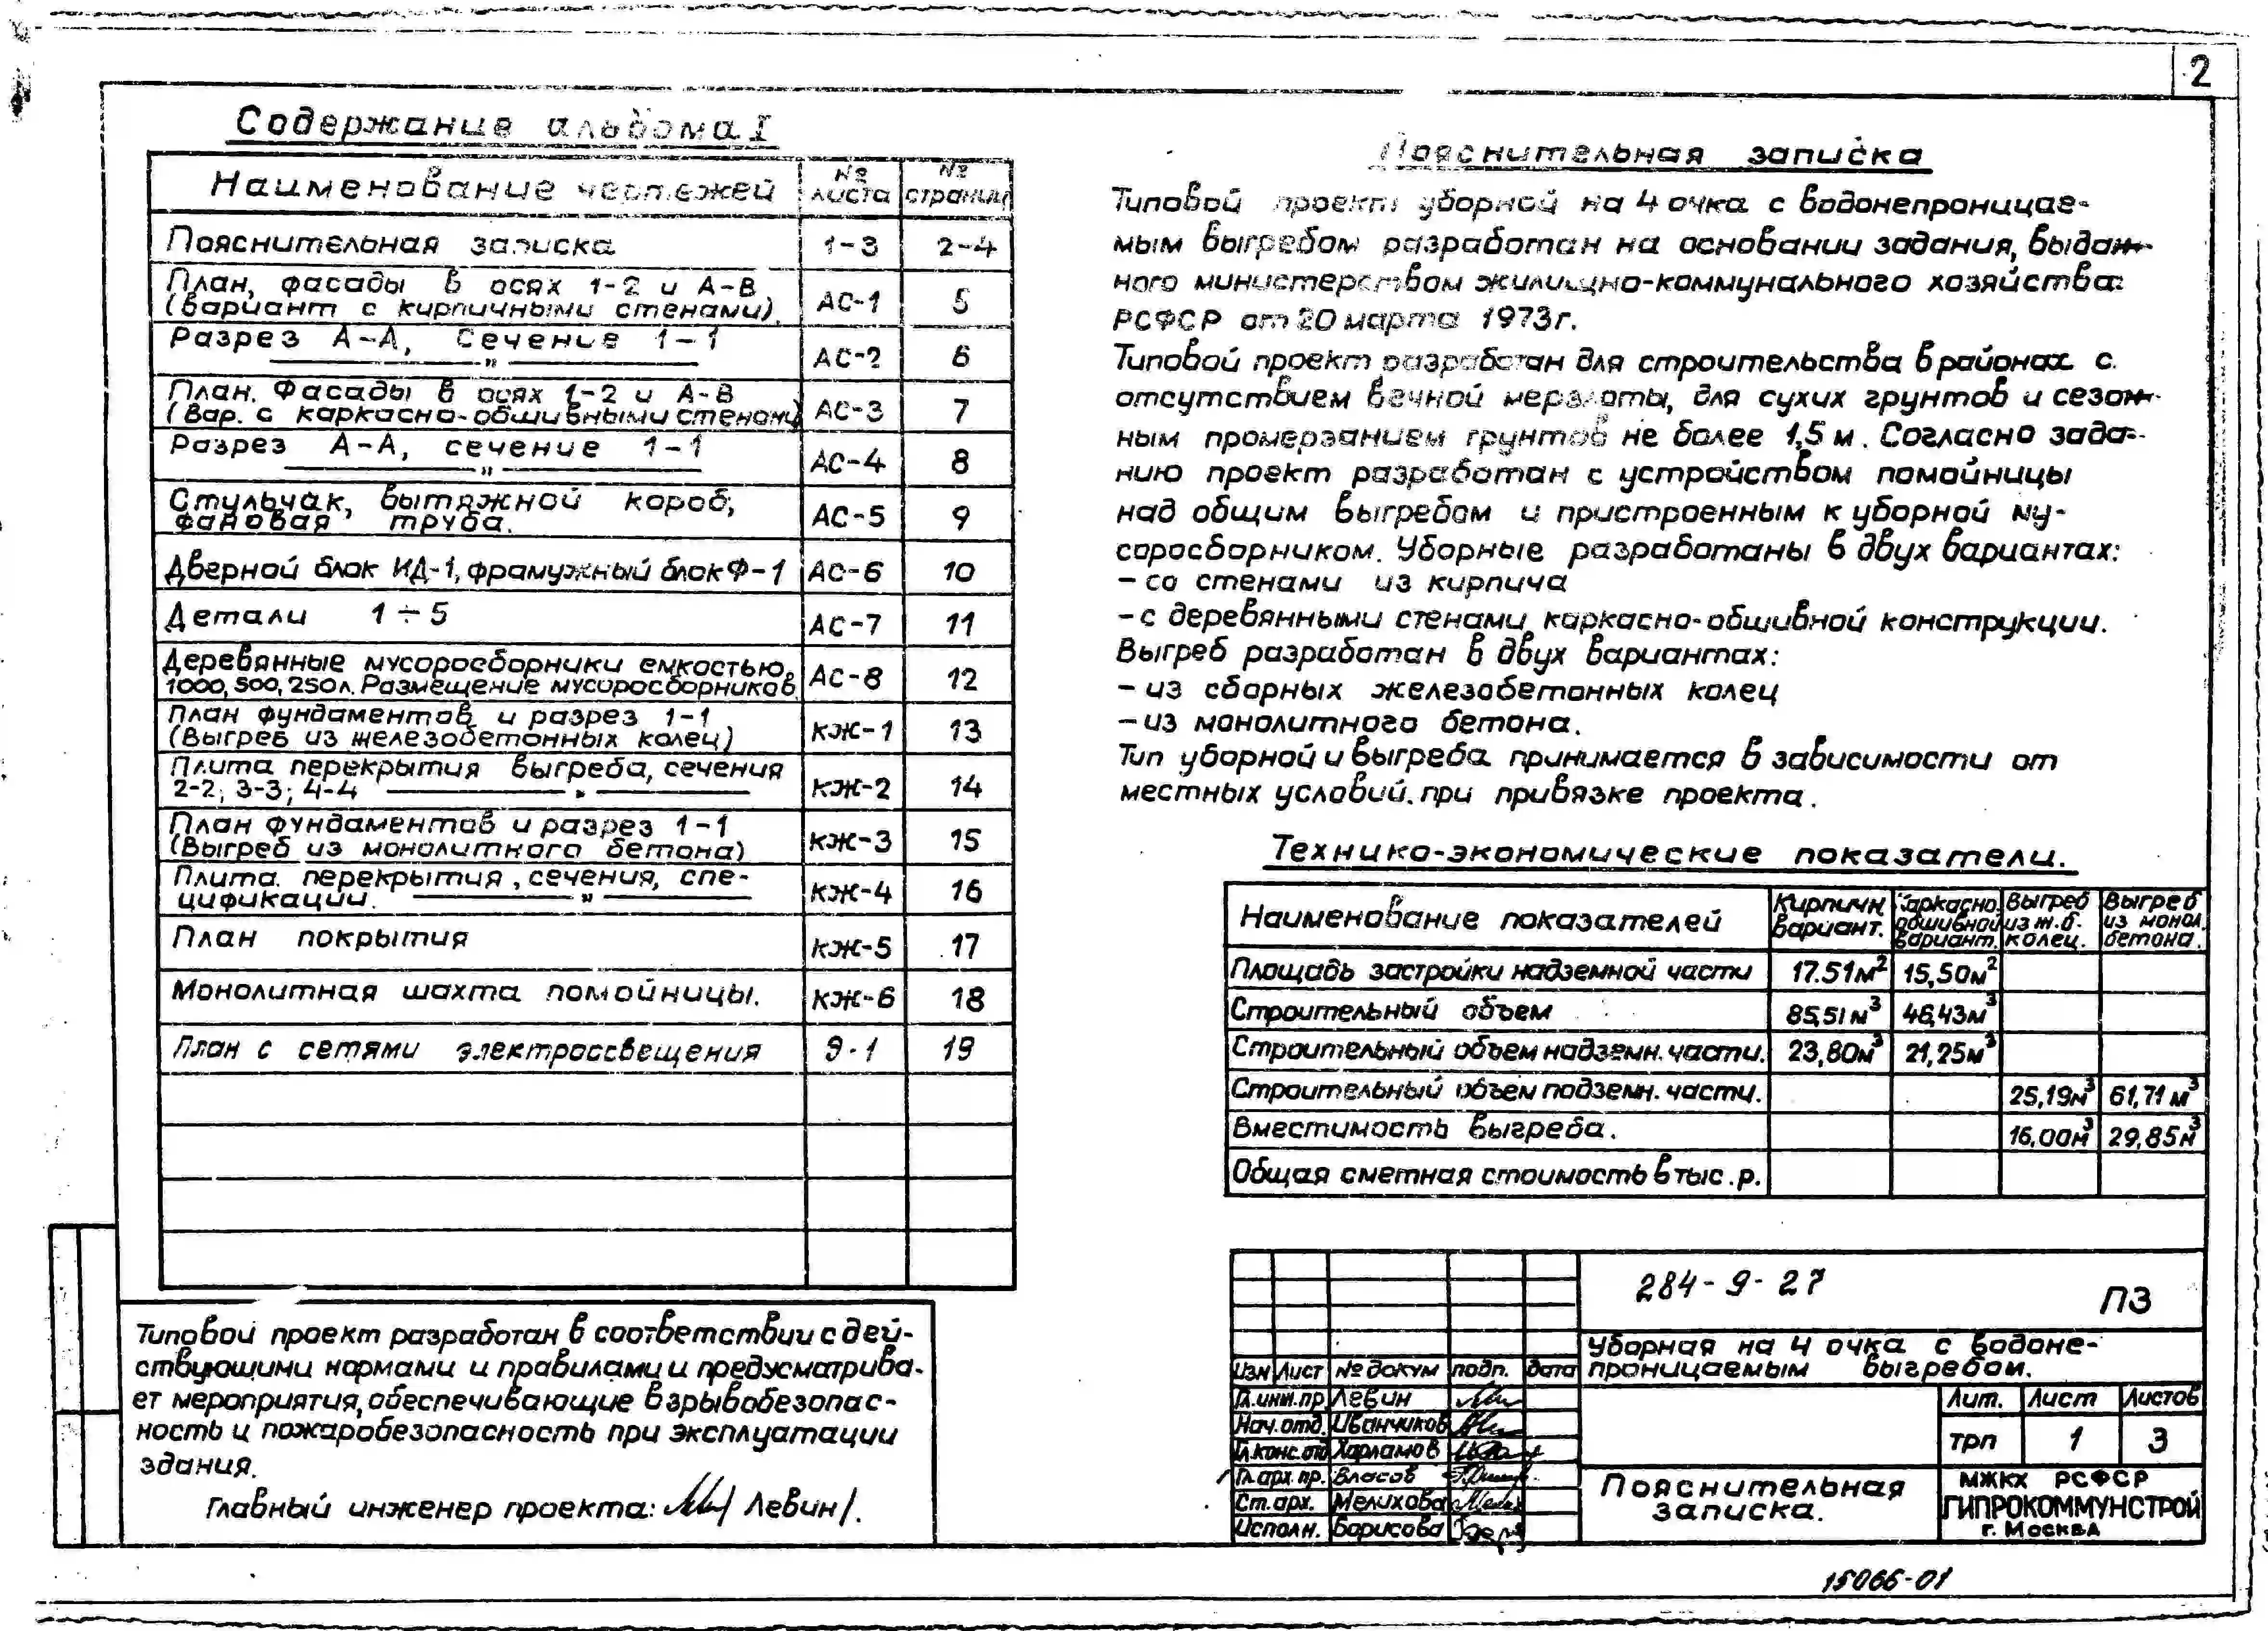 2
Содержание альбома I
Наименование чертежей
№ листа
№ страниц
Пояснительная записка 1-3 2-4
План, фасады в осях 1-2 и А-В
(вариант с кирпичными стенами). АС-1 5
Разрез А-А, Сечение 1-1
— " — АС-2 6
План. Фасады в осях 1-2 и А-В
(Вар. с каркасно-обшивными стенами) АС-3 7
Разрез А-А, сечение 1-1
— " — АС-4 8
Стульчак, вытяжной короб,
фановая труба. АС-5 9
Дверной блок ИД-1, фрамужный блок Ф-1 АС-6 10
Детали 1÷5 АС-7 11
Деревянные мусоросборники емкостью
1000, 500, 250л. Размещение мусоросборников. АС-8 12
План фундаментов и разрез 1-1
(Выгреб из железобетонных колец) КЖ-1 13
Плита перекрытия выгреба, сечения
2-2; 3-3; 4-4 — " — КЖ-2 14
План фундаментов и разрез 1-1
(Выгреб из монолитного бетона) КЖ-3 15
Плита перекрытия, сечения, спе-
цификации. — " — КЖ-4 16
План покрытия КЖ-5 17
Монолитная шахта помойницы. КЖ-6 18
План с сетями электроосвещения Э-1 19
Типовой проект разработан в соответствии с дей-
ствующими нормами и правилами и предусматрива-
ет мероприятия, обеспечивающие взрывобезопас-
ность и пожаробезопасность при эксплуатации
здания.
Главный инженер проекта: /Левин/.
Пояснительная записка
Типовой проект уборной на 4 очка с водонепроницае-
мым выгребом разработан на основании задания, выдан-
ного министерством жилищно-коммунального хозяйства
РСФСР от 20 марта 1973г.
Типовой проект разработан для строительства в районах с
отсутствием вечной мерзлоты, для сухих грунтов и сезон-
ным промерзанием грунтов не более 1,5 м. Согласно зада-
нию проект разработан с устройством помойницы
над общим выгребом и пристроенным к уборной му-
соросборником. Уборные разработаны в двух вариантах:
- со стенами из кирпича
- с деревянными стенами каркасно-обшивной конструкции.
Выгреб разработан в двух вариантах:
- из сборных железобетонных колец
- из монолитного бетона.
Тип уборной и выгреба принимается в зависимости от
местных условий. при привязке проекта.
Технико-экономические показатели.
Наименование показателей
Кирпичн. вариант.
Каркасно. обшивной вариант.
Выгреб из ж.б. колец.
Выгреб из монол. бетона.
Площадь застройки надземной части 17.51м² 15,50м²
Строительный объем 85,51м³ 46,43м³
Строительный объем надземн. части. 23,80м³ 21,25м³
Строительный объем подземн. части. 25,19м³ 61,71м³
Вместимость выгреба. 16,00м³ 29,85м³
Общая сметная стоимость в тыс. р.
284-9-27
ПЗ
Уборная на 4 очка с водоне-
проницаемым выгребом.
Изм Лист № докум подп. дата
Гл.инж.пр. Левин
Нач.отд. Иванчиков
Гл.конс.отд Харламов
Гл.арх.пр. Власов
Ст.арх. Мелихова
Исполн. Борисова
Лит. Лист Листов
ТРП 1 3
Пояснительная
записка.
МЖКХ РСФСР
ГИПРОКОММУНСТРОЙ
г. Москва
15066-01